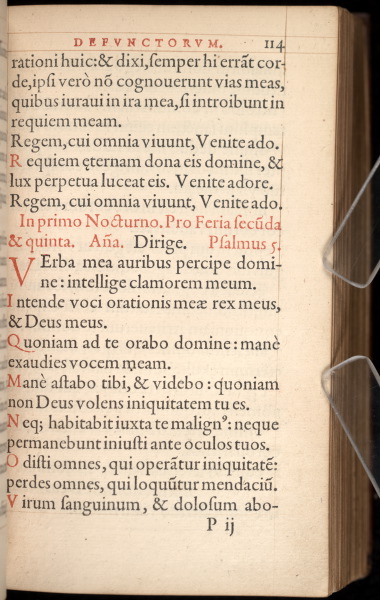 DEFVNCTORVM. 114
rationi huic:& dixi,ſemper hi errãt cor-
de,ipſi verò nõ cognouerunt vias meas,
quibus iuraui in ira mea,ſi introibunt in
requiem meam.
Regem,cui omnia viuunt,Venite ado.
R equiem ęternam dona eis domine, &
lux perpetua luceat eis. Venite adore.
Regem, cui omnia viuunt, Venite ado.
In primo Nocturno. Pro Feria ſecũda
& quinta. Aña. Dirige. Pſalmus 5.
VErba mea auribus percipe domi-
ne: intellige clamorem meum.
I ntende voci orationis meæ rex meus,
& Deus meus.
Quoniam ad te orabo domine: manè
exaudies vocem meam.
Manè aſtabo tibi, & videbo: quoniam
non Deus volens iniquitatem tu es.
Neq; habitabit iuxta te malignꝰ: neque
permanebunt iniuſti ante oculos tuos.
O diſti omnes, qui operãtur iniquitatẽ:
perdes omnes, qui loquũtur mendaciũ.
V irum ſanguinum, & doloſum abo-
P ij